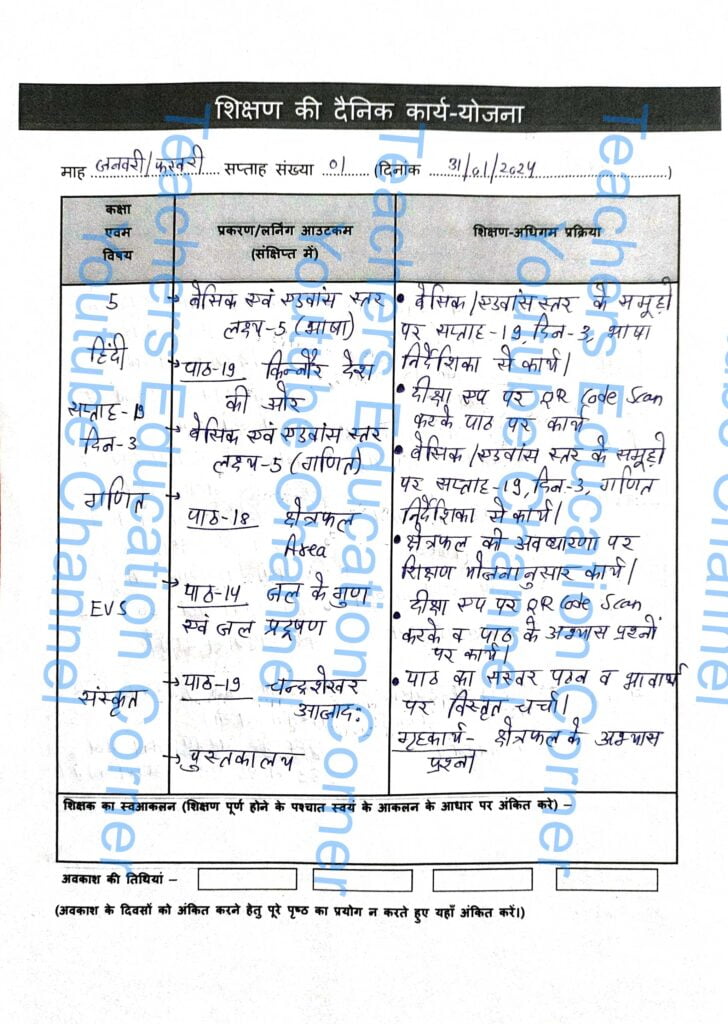 शिक्षण की दैनिक कार्य-योजना
माह जनवरी/फरवरी सप्ताह संख्या 01 (दिनांक 31/01/2024)
कक्षा
एवम
विषय
प्रकरण/लर्निंग आउटकम
(संक्षिप्त में)
शिक्षण-अधिगम प्रक्रिया
5
हिंदी
सप्ताह-19
दिन-3
गणित
EVS
संस्कृत
→ बेसिक एवं एडवांस स्तर
लक्ष्य-5 (भाषा)
→ पाठ-19 किन्नौर देश
की ओर
→ बेसिक एवं एडवांस स्तर
लक्ष्य-5 (गणित)
→ पाठ-18 क्षेत्रफल
Area
→ पाठ-14 जल के गुण
एवं जल प्रदूषण
→ पाठ-19 चन्द्रशेखर
आजाद:
→ पुस्तकालय
• बेसिक/एडवांस स्तर के समूहों
पर सप्ताह-19, दिन-3, भाषा
निर्देशिका से कार्य।
• दीक्षा एप पर QR Code Scan
करके पाठ पर कार्य
• बेसिक/एडवांस स्तर के समूहों
पर सप्ताह-19, दिन-3, गणित
निर्देशिका से कार्य।
• क्षेत्रफल की अवधारणा पर
शिक्षण योजनानुसार कार्य।
• दीक्षा एप पर QR Code Scan
करके व पाठ के अभ्यास प्रश्नों
पर कार्य।
• पाठ का सस्वर पठन व भावार्थ
पर विस्तृत चर्चा।
गृहकार्य- क्षेत्रफल के अभ्यास
प्रश्न।
शिक्षक का स्वआकलन (शिक्षण पूर्ण होने के पश्चात स्वयं के आकलन के आधार पर अंकित करे) –
अवकाश की तिथियां –
(अवकाश के दिवसों को अंकित करने हेतु पूरे पृष्ठ का प्रयोग न करते हुए यहाँ अंकित करें।)
Teachers Education Corner
Youtube Channel
Teachers Education Corner
Youtube Channel
Teachers Education Corner
Youtube Channel